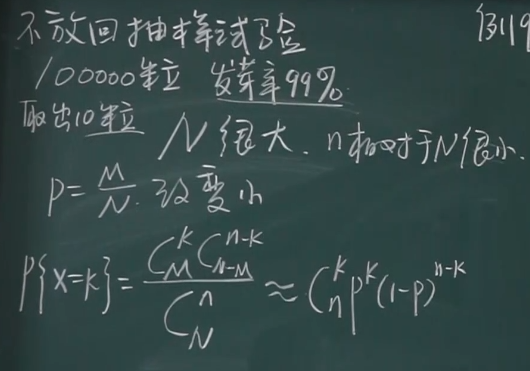 不放回抽样试验
例119
100000粒 发芽率99%
取出10粒 N很大. n相对于N很小.
P=M/N. 改变小
P{X=k}=\frac{C_M^k C_{n-M}^{n-k}}{C_N^n}≈C_n^k P^k(1-P)^{n-k}